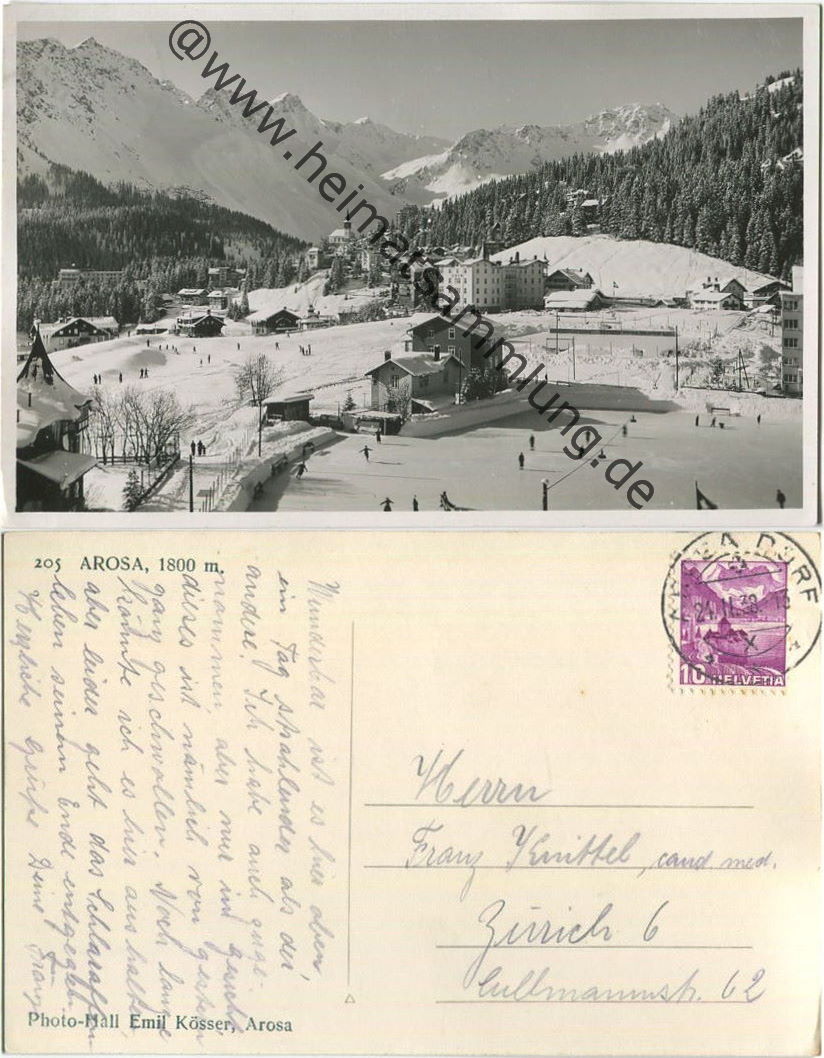 @www.heimatsammlung.de
205 AROSA, 1800 m.
Wunderbar ist es hier oben,
ein Tag strahlender als der
andere. Ich habe auch zuge-
nommen aber nur im Gesicht
dieses ist nämlich von gestern
ganz geschwollen. Noch lange
könnte ich es hier aushalten,
aber leider geht das Schlaraffen
leben seinem Ende entgegen.
Herzliche Grüsse Deine
Photo-Hall Emil Kösser, Arosa
DORF
24.II.38
10 HELVETIA
Herrn
Franz Knittel, cand. med.
Zürich 6
Culmannstr. 62